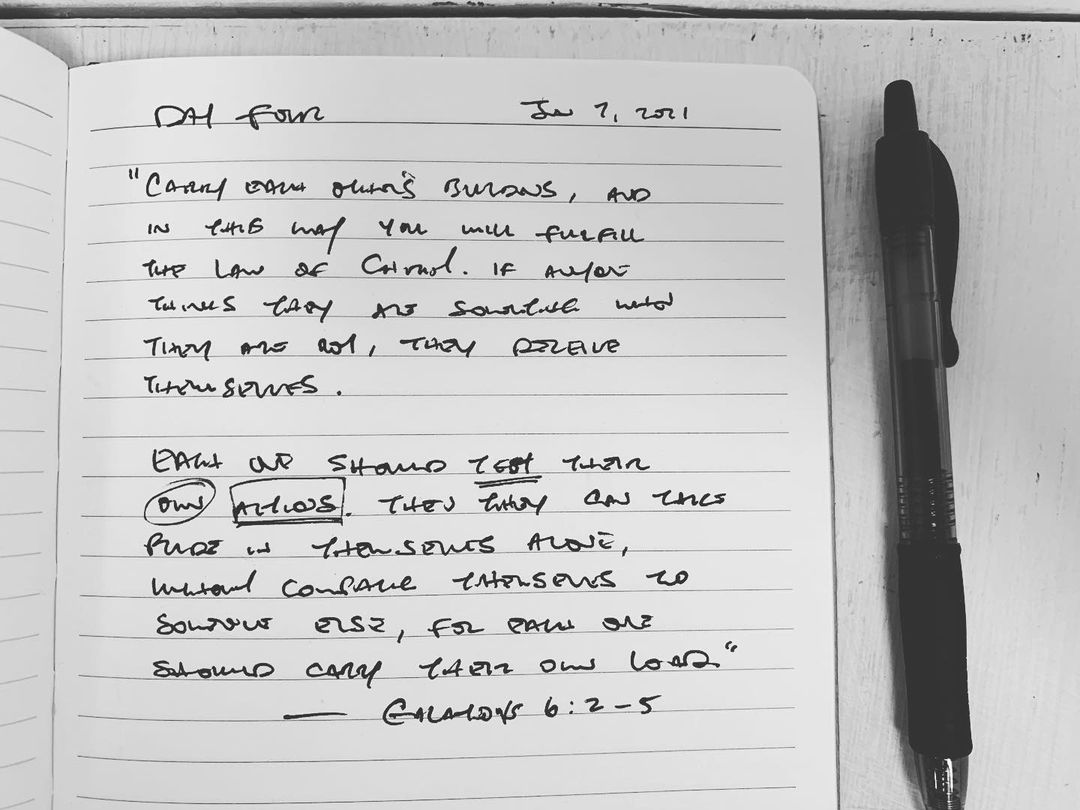 DAY FOUR JAN 7, 2021
"CARRY EACH OTHER'S BURDENS, AND
IN THIS WAY YOU WILL FULFILL
THE LAW OF CHRIST. IF ANYONE
THINKS THEY ARE SOMETHING WHEN
THEY ARE NOT, THEY DECEIVE
THEMSELVES.
EACH ONE SHOULD TEST THEIR
OWN ACTIONS. THEN THEY CAN TAKE
PRIDE IN THEMSELVES ALONE,
WITHOUT COMPARING THEMSELVES TO
SOMEONE ELSE, FOR EACH ONE
SHOULD CARRY THEIR OWN LOAD."
— GALATIONS 6:2-5